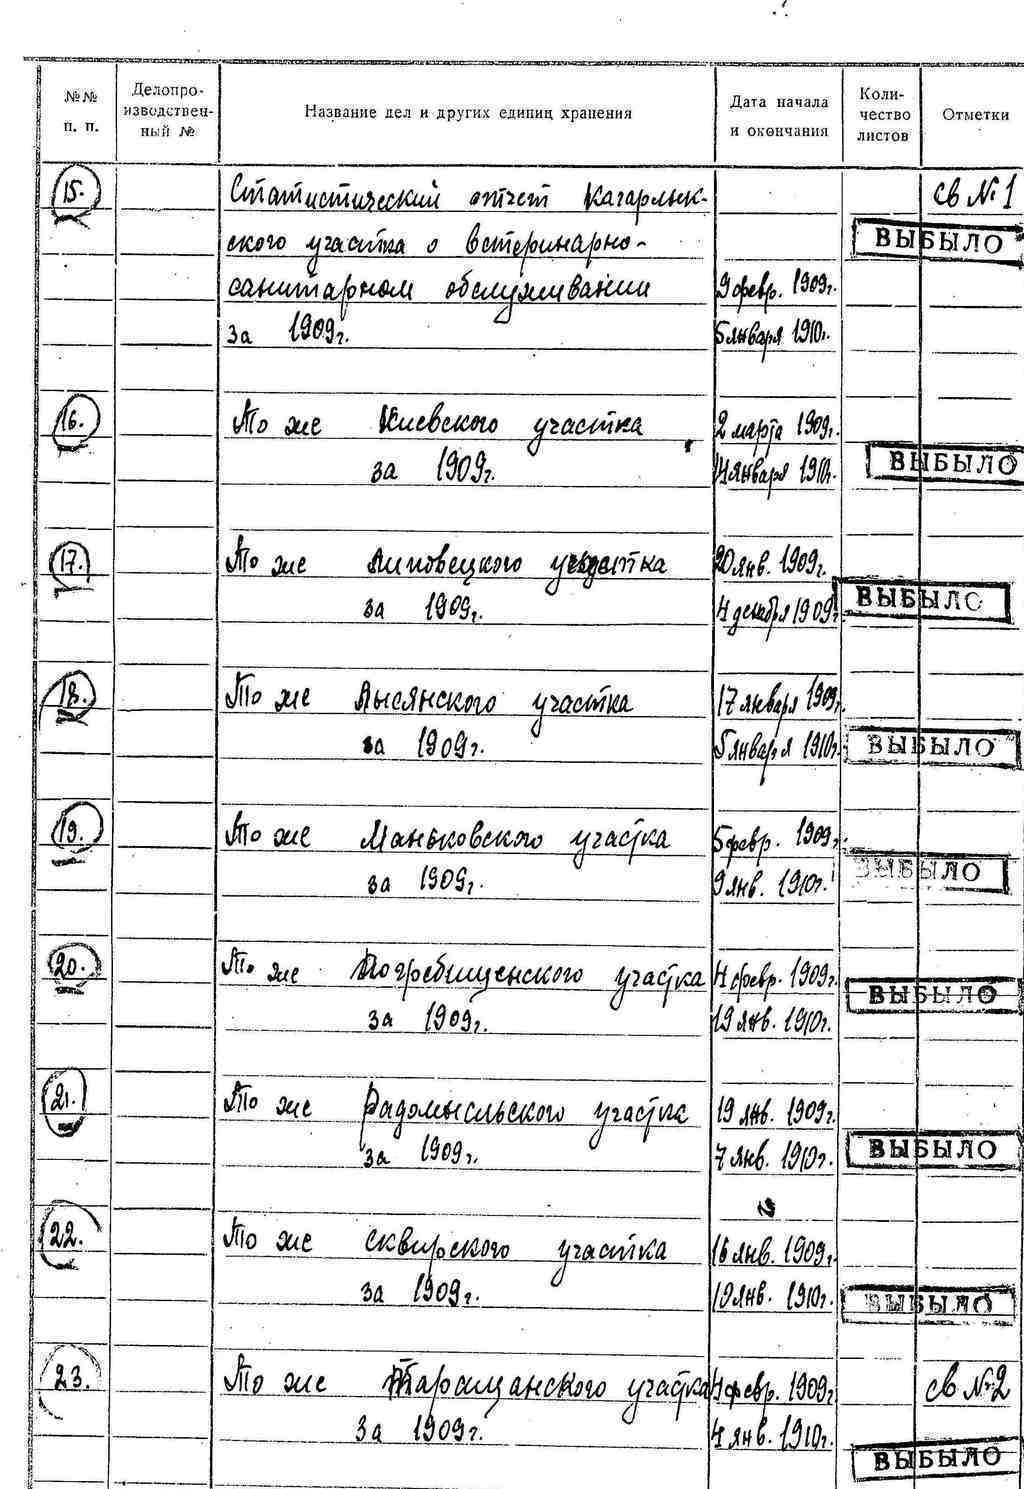 №№ п. п.
Делопро-
изводствен-
ный №
Название дел и других единиц хранения
Дата начала
и окончания
Коли-
чество
листов
Отметки
15. Статистический отчет Кагарлык- св №1
ского участка о ветеринарно- ВЫБЫЛО
санитарном обслуживании 9 февр. 1909г.
за 1909г. 5 января 1910г.
16. То же Киевского участка 2 марта 1909г.
за 1909г. 4 января 1910г. ВЫБЫЛО
17. То же Липовецкого участка 20 янв. 1909г.
за 1909г. 4 декабря 1909г. ВЫБЫЛО
18. То же Лысянского участка 17 января 1909г.
за 1909г. 5 января 1910г. ВЫБЫЛО
19. То же Маньковского участка 5 февр. 1909г.
за 1909г. 9 янв. 1910г. ВЫБЫЛО
20. То же Погребищенского участка 4 февр. 1909г. ВЫБЫЛО
за 1909г. 19 янв. 1910г.
21. То же Радомысльского участка 19 янв. 1909г.
за 1909г. 7 янв. 1910г. ВЫБЫЛО
22. То же Сквирского участка 16 янв. 1909г.
за 1909г. 10 янв. 1910г. ВЫБЫЛО
23. То же Таращанского участка 4 февр. 1909г. св №2
за 1909г. 4 янв. 1910г. ВЫБЫЛО